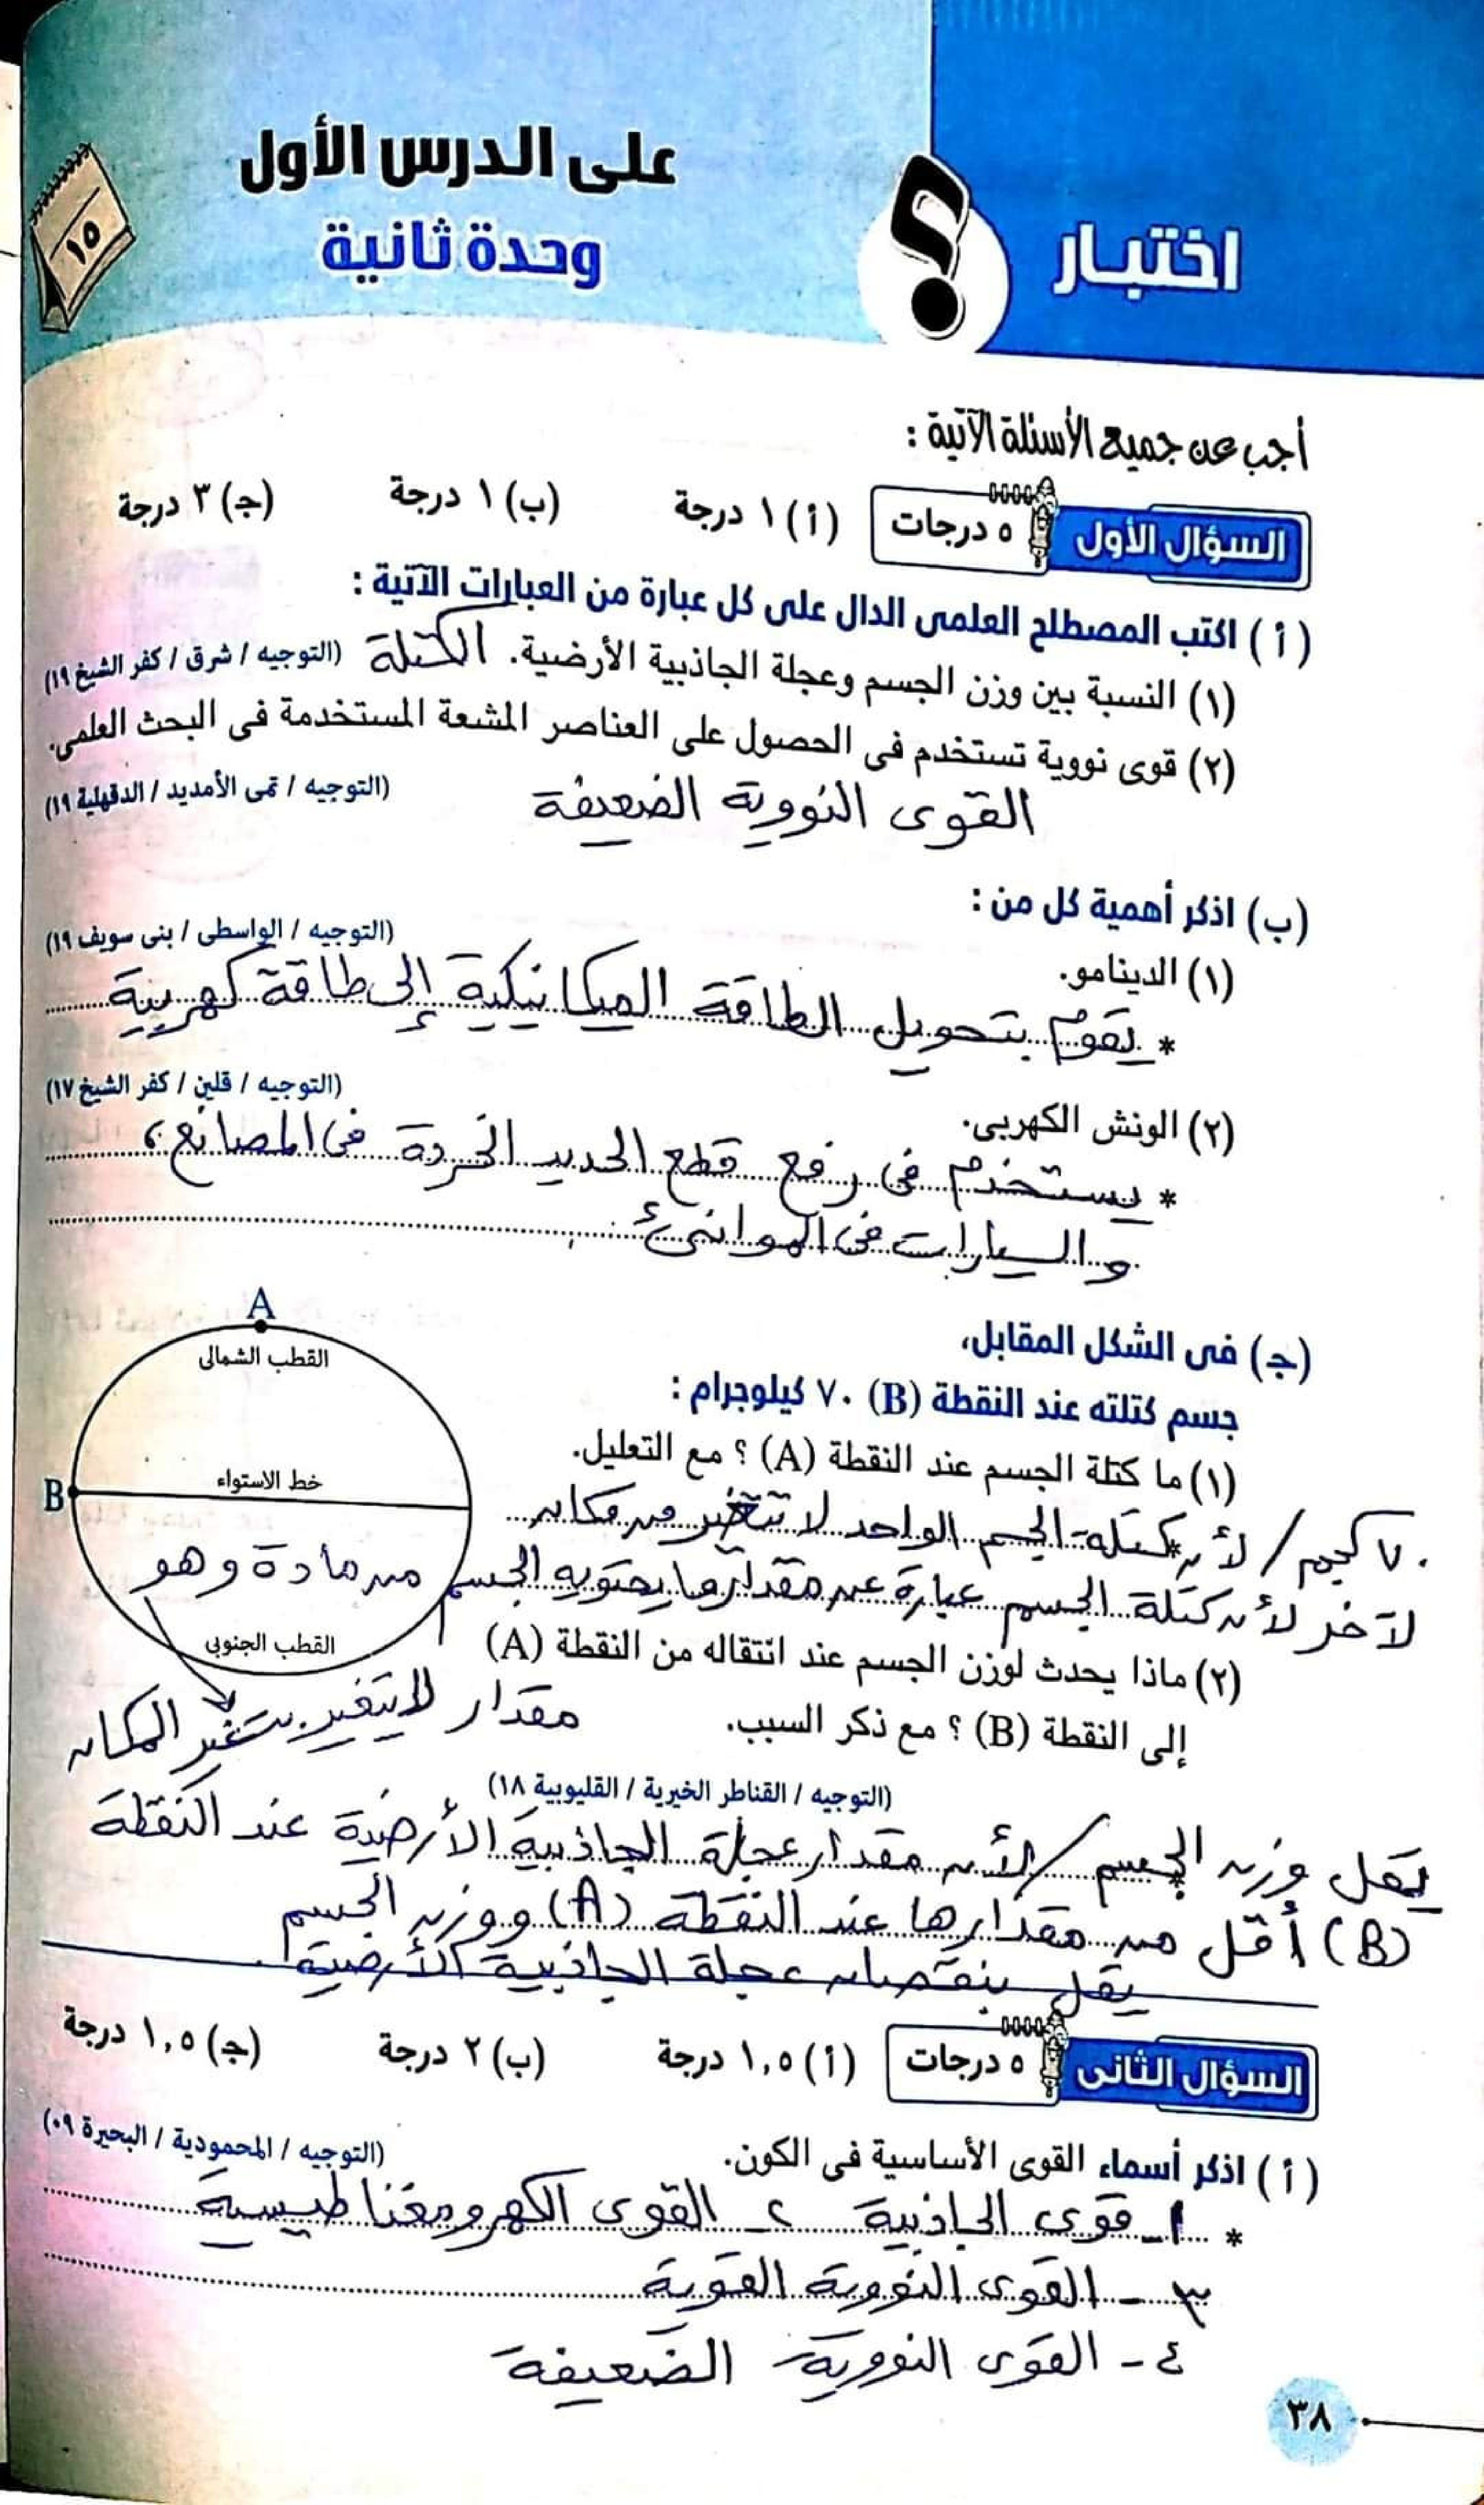 اختبار
؟
على الدرس الأول
وحدة ثانية
١٥
أجب عن جميع الأسئلة الآتية :
السؤال الأول ٥ درجات (أ) ١ درجة (ب) ١ درجة (جـ) ٣ درجة
(أ) اكتب المصطلح العلمى الدال على كل عبارة من العبارات الآتية :
(١) النسبة بين وزن الجسم وعجلة الجاذبية الأرضية. الكتلة (التوجيه / شرق / كفر الشيخ ١٩)
(٢) قوى نووية تستخدم فى الحصول على العناصر المشعة المستخدمة فى البحث العلمى.
القوى النووية الضعيفة (التوجيه / تمى الأمديد / الدقهلية ١٩)
(ب) اذكر أهمية كل من :
(١) الدينامو. (التوجيه / الواسطى / بنى سويف ١٩)
* يقوم بتحويل الطاقة الميكانيكية إلى طاقة كهربية
(٢) الونش الكهربى. (التوجيه / قلين / كفر الشيخ ١٧)
* يستخدم فى رفع قطع الحديد الخردة فى المصانع ،
والسيارات فى الموانئ
(جـ) فى الشكل المقابل،
جسم كتلته عند النقطة (B) ٧٠ كيلوجرام :
(١) ما كتلة الجسم عند النقطة (A) ؟ مع التعليل.
٧٠ كجم / لأن كتلة الجسم الواحد لا تتغير من مكان
لآخر لأن كتلة الجسم عبارة عن مقدار ما يحتويه الجسم من مادة وهو
مقدار لا يتغير بتغير المكان
A
القطب الشمالى
B
خط الاستواء
القطب الجنوبى
(٢) ماذا يحدث لوزن الجسم عند انتقاله من النقطة (A)
إلى النقطة (B) ؟ مع ذكر السبب.
(التوجيه / القناطر الخيرية / القليوبية ١٨)
يقل وزن الجسم / لأن مقدار عجلة الجاذبية الأرضية عند النقطة
(B) أقل من مقدارها عند النقطة (A) ووزن الجسم
يقل بنقصان عجلة الجاذبية الأرضية
السؤال الثانى ٥ درجات (أ) ١,٥ درجة (ب) ٢ درجة (جـ) ١,٥ درجة
(أ) اذكر أسماء القوى الأساسية فى الكون. (التوجيه / المحمودية / البحيرة ٠٩)
* ١- قوى الجاذبية ٢- القوى الكهرومغناطيسية
٣- القوى النووية القوية
٤- القوى النووية الضعيفة
٣٨